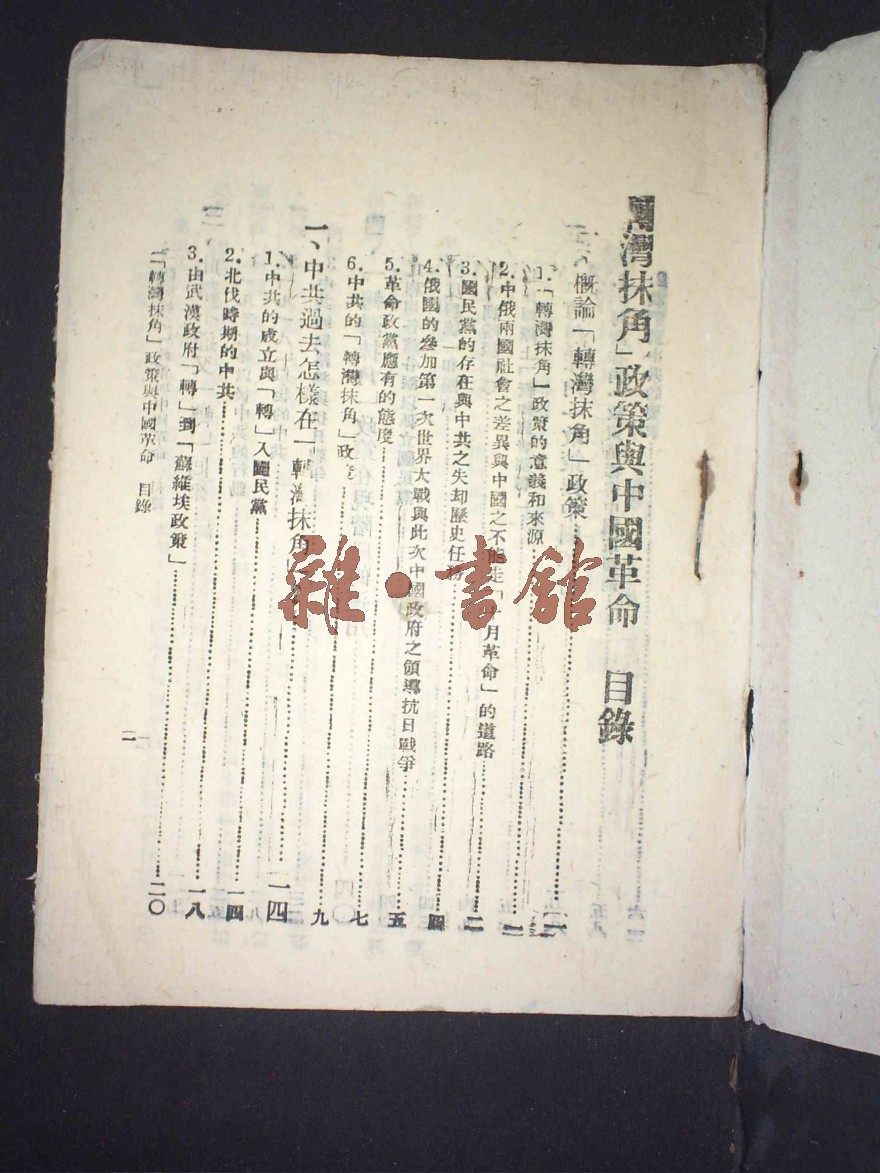 灣抹角」政策與中國革命 目錄
概論「轉灣抹角」政策……一
1.「轉灣抹角」政策的意義和來源……一
2.中俄兩國社會之差異與中國之不能走「十月革命」的道路……二
3.國民黨的存在與中共之失却歷史任務……四
4.俄國的參加第一次世界大戰與此次中國政府之領導抗日戰爭……五
5.革命政黨應有的態度……七
6.中共的「轉灣抹角」政……九
一、中共過去怎樣在「轉灣抹角」……一四
1.中共的成立與「轉」入國民黨……一四
2.北伐時期的中共……一八
3.由武漢政府「轉」到「蘇維埃政策」……二〇
「轉灣抹角」政策與中國革命 目錄
一
雜·書館